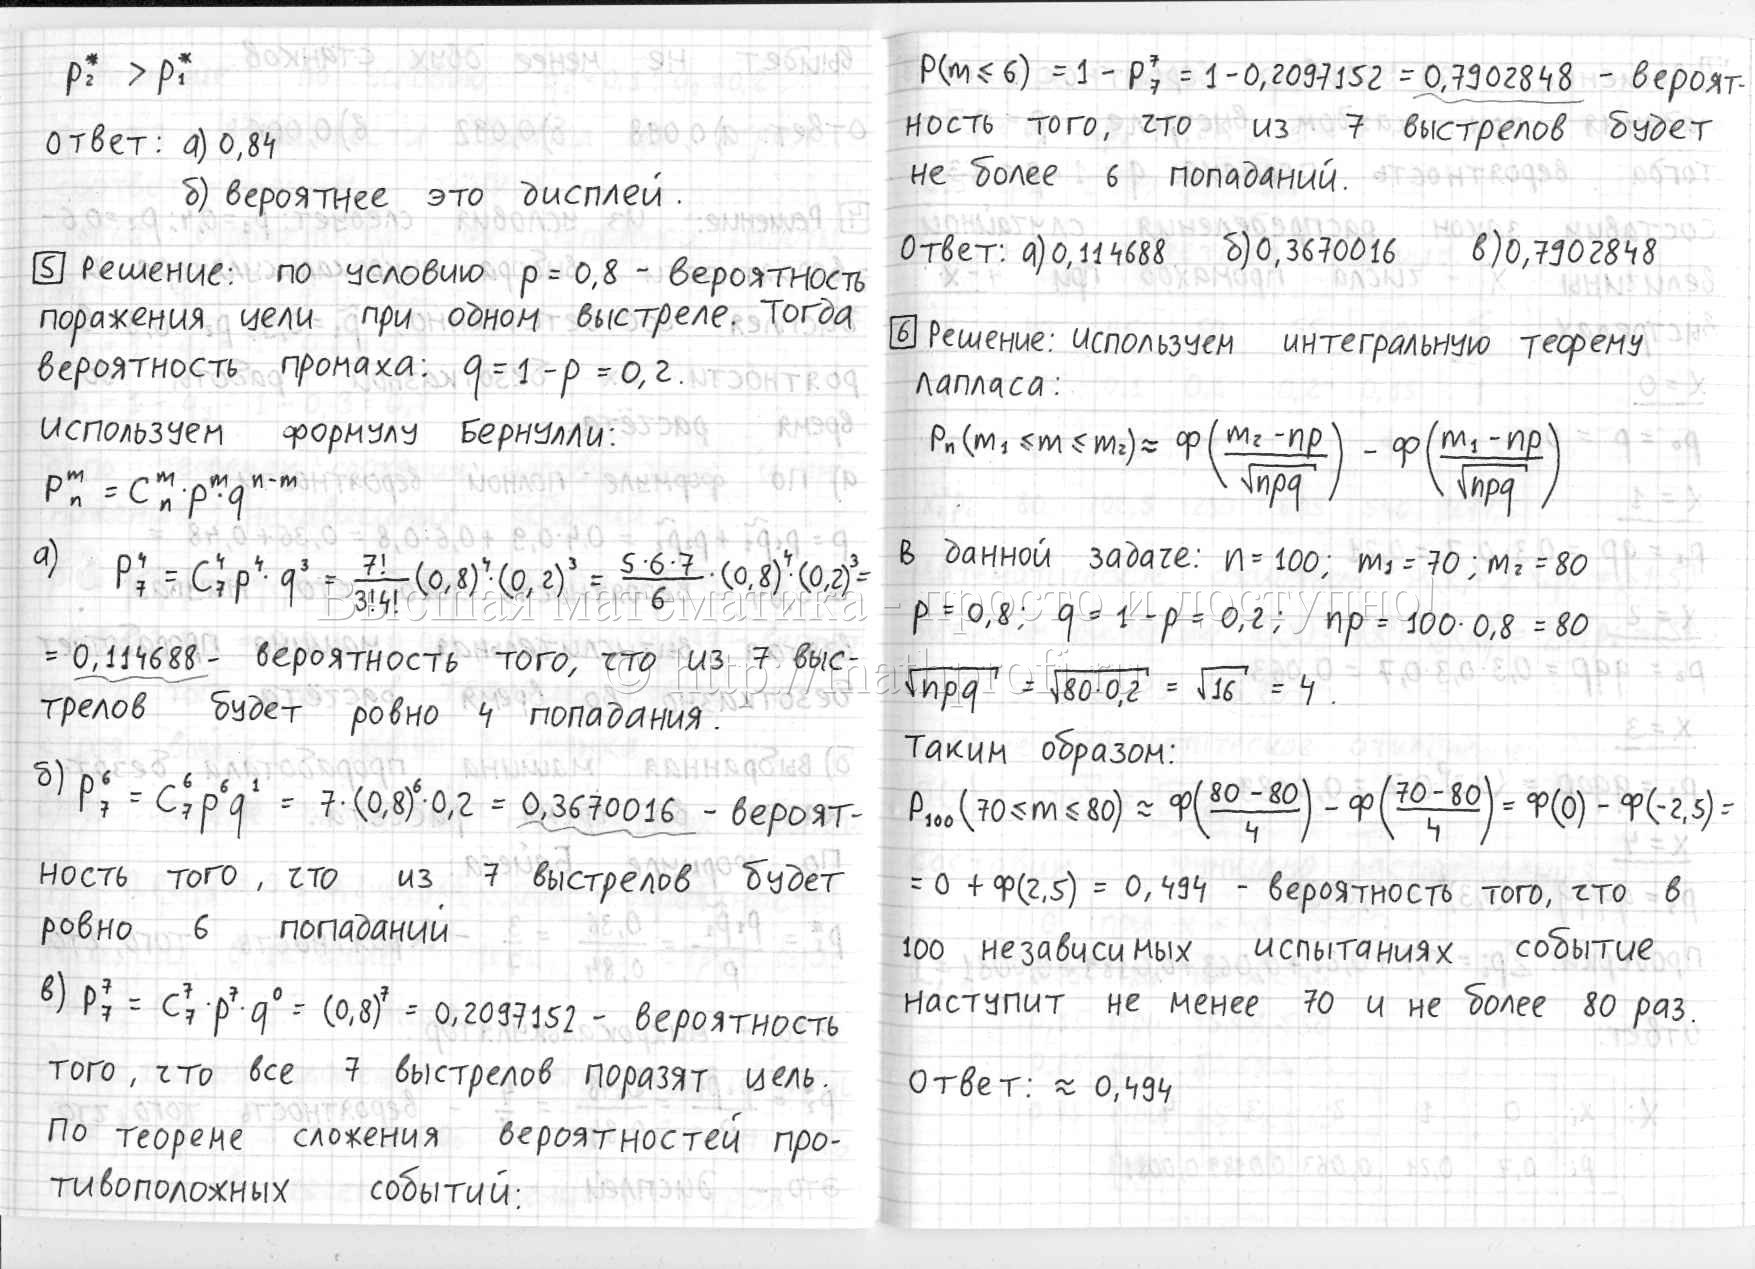 p₂* > p₁*
Ответ: а) 0,84
б) вероятнее это дисплей.
5 Решение: по условию p = 0,8 – вероятность
поражения цели при одном выстреле. Тогда
вероятность промаха: q = 1 – p = 0,2.
Используем формулу Бернулли:
Pₙᵐ = Cₙᵐ · pᵐ · qⁿ⁻ᵐ
а) P₇⁴ = C₇⁴ p⁴ · q³ = 7!/(3!4!) (0,8)⁴ · (0,2)³ = (5·6·7)/6 · (0,8)⁴ · (0,2)³ =
= 0,114688 – вероятность того, что из 7 выс-
трелов будет ровно 4 попадания.
б) P₇⁶ = C₇⁶ p⁶ q¹ = 7·(0,8)⁶·0,2 = 0,3670016 – вероят-
ность того, что из 7 выстрелов будет
ровно 6 попаданий
в) P₇⁷ = C₇⁷ · p⁷ · q⁰ = (0,8)⁷ = 0,2097152 – вероятность
того, что все 7 выстрелов поразят цель.
По теореме сложения вероятностей про-
тивоположных событий:
P(m ≤ 6) = 1 – P₇⁷ = 1 – 0,2097152 = 0,7902848 – вероят-
ность того, что из 7 выстрелов будет
не более 6 попаданий.
Ответ: а) 0,114688 б) 0,3670016 в) 0,7902848
6 Решение: Используем интегральную теорему
Лапласа:
Pₙ(m₁ ≤ m ≤ m₂) ≈ Ф((m₂ – np)/√npq) – Ф((m₁ – np)/√npq)
В данной задаче: n = 100; m₁ = 70; m₂ = 80
p = 0,8; q = 1 – p = 0,2; np = 100·0,8 = 80
√npq = √80·0,2 = √16 = 4.
Таким образом:
P₁₀₀(70 ≤ m ≤ 80) ≈ Ф((80 – 80)/4) – Ф((70 – 80)/4) = Ф(0) – Ф(–2,5) =
= 0 + Ф(2,5) = 0,494 – вероятность того, что в
100 независимых испытаниях событие
наступит не менее 70 и не более 80 раз.
Ответ: ≈ 0,494
Высшая математика – просто и доступно!
© http://mathprofi.ru